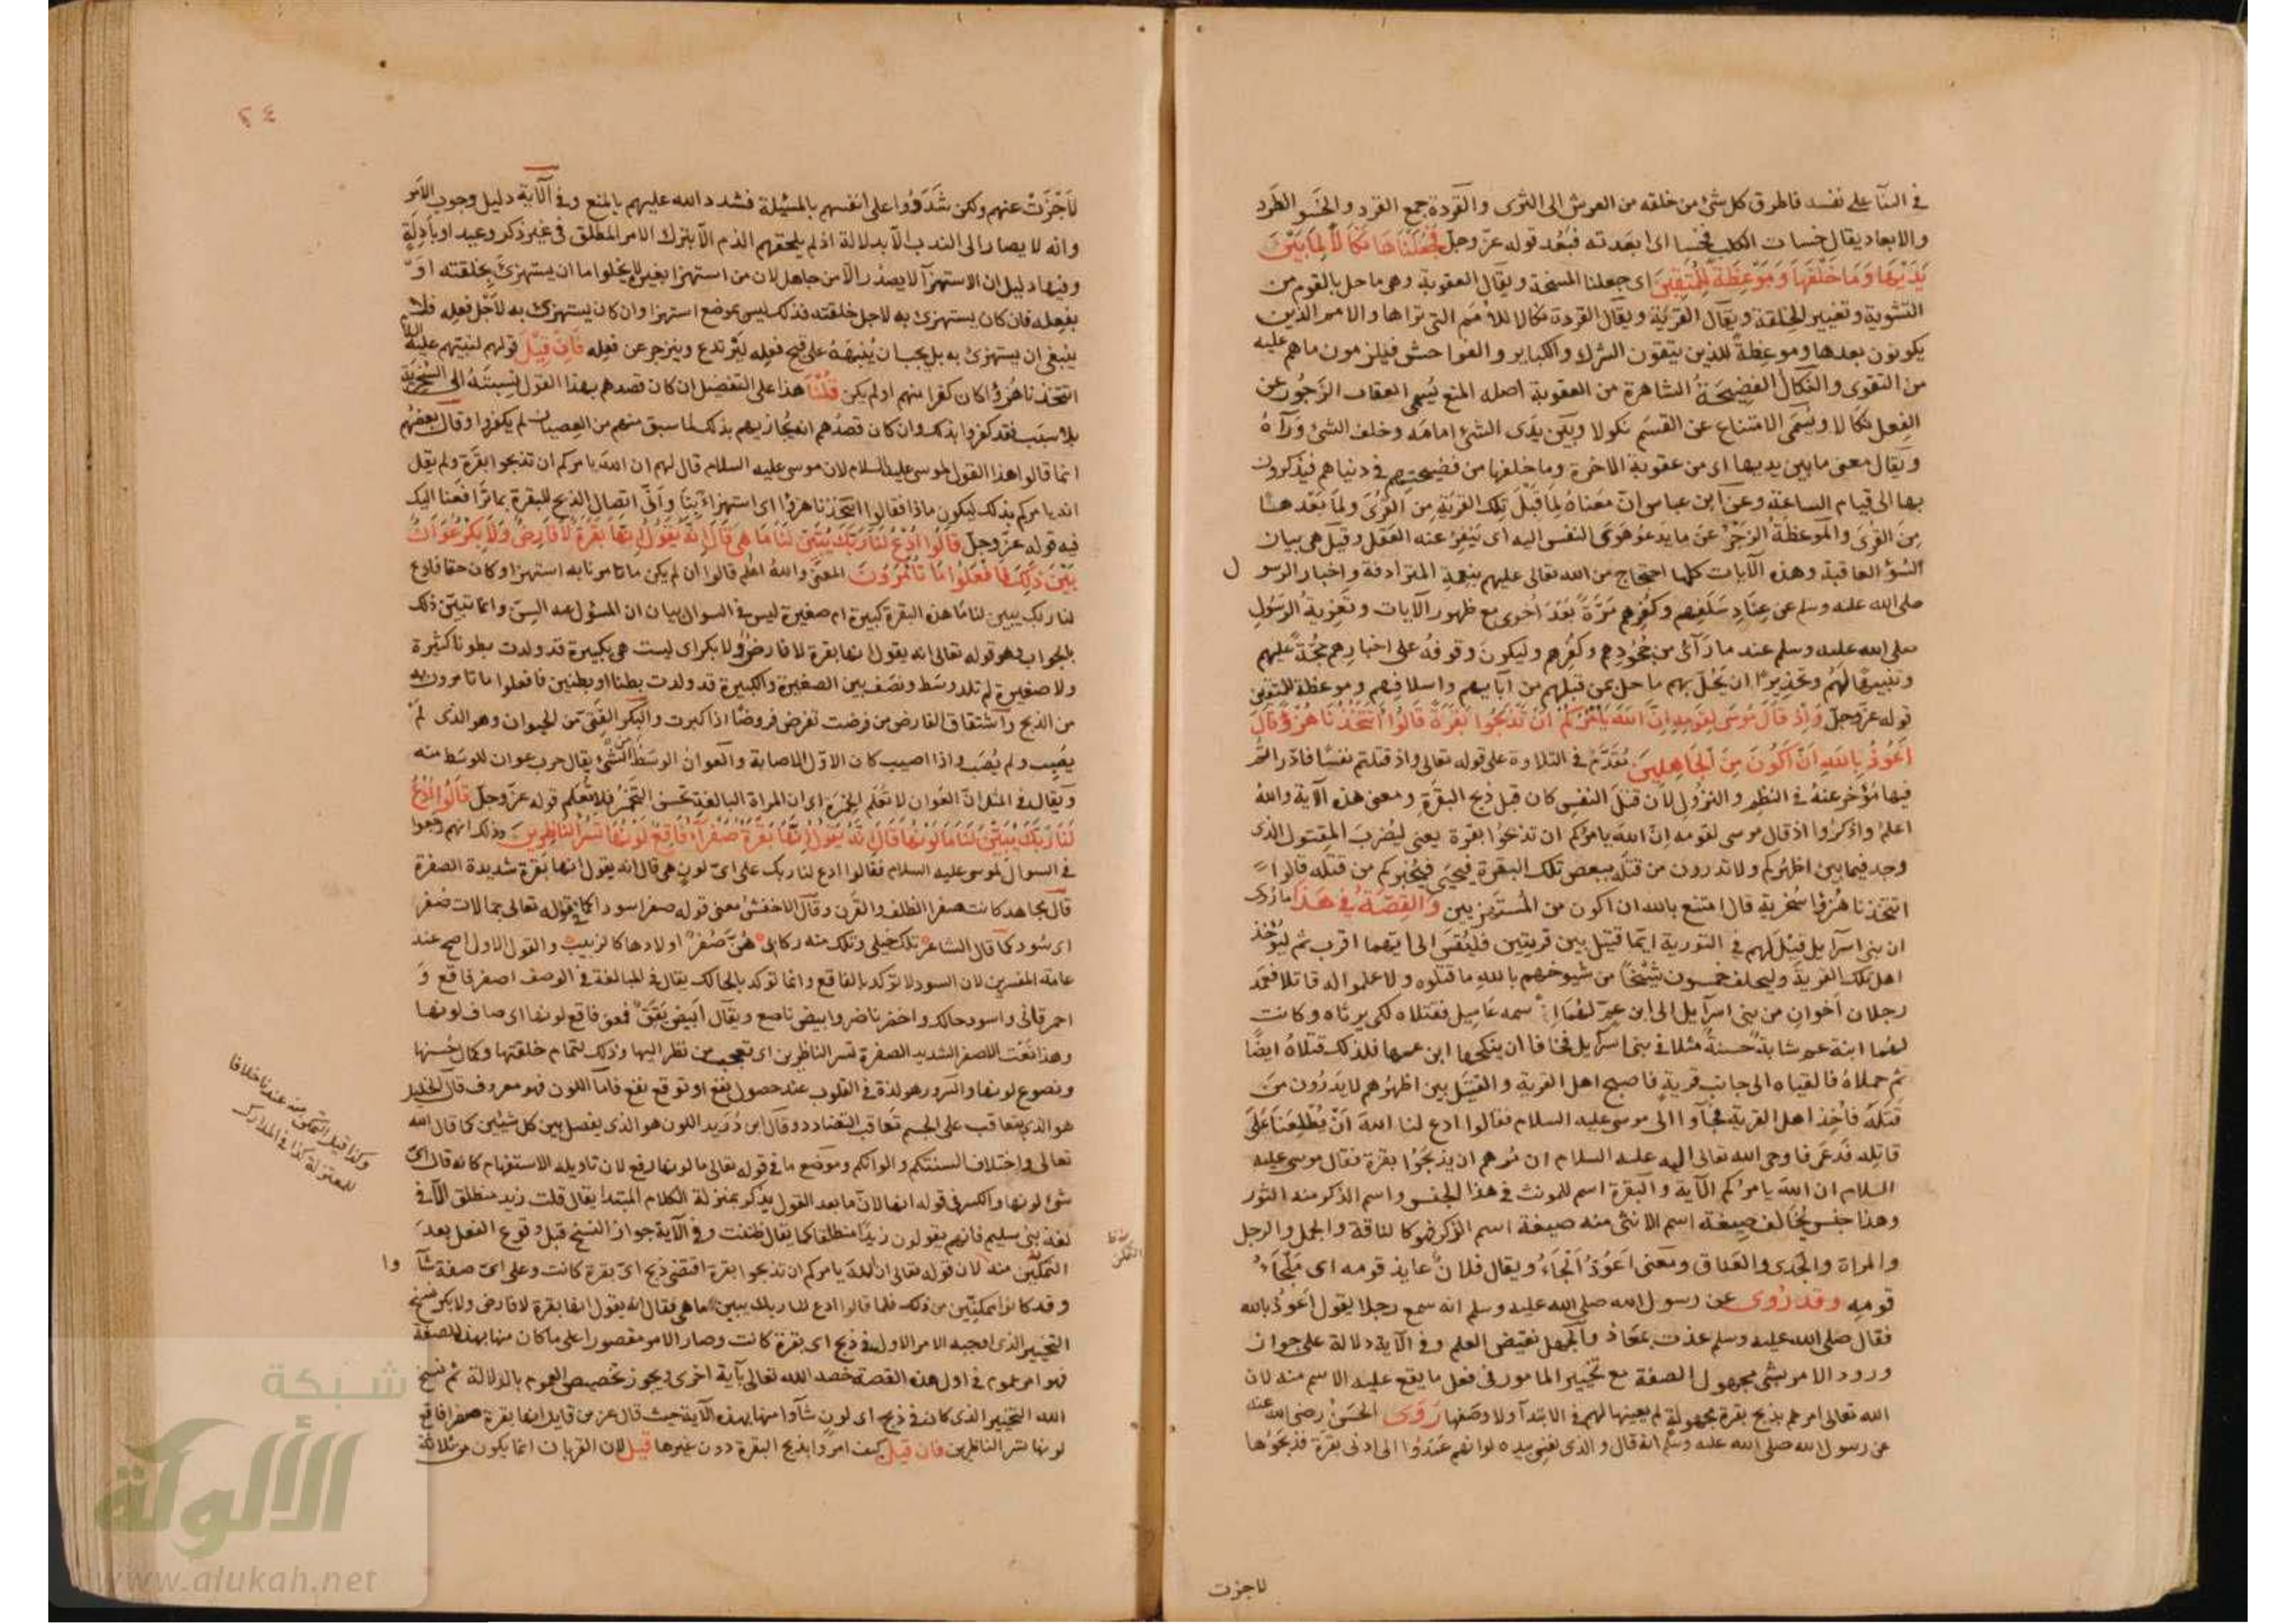 في السنا على نفسه فاطرق كل شئ من خلقه من العرش الى الثرى والقردة جمع القرد والخسو الطرد
والابعاد يقال خسات الكلب فخسا اى ابعدته فبعد قوله عزوجل فجعلناها نكالا لما بين
يديها وما خلفها وموعظة للمتقين اى جعلنا المسخة ويقال العقوبة وهى ما حل بالقوم من
التشوية وتغيير الخلقة ويقال القرية ويقال القردة نكالا للامم التى تراها والامم الذين
يكونون بعدها وموعظة للذين يتقون الشرك والكباير والفواحش فيلزمون ماهم عليه
من التقوى والنكال الفضيحة الشاهرة من العقوبة اصله المنع يسمى العقاب الزجور عن
الفعل نكالا ويسمى الامتناع عن القسم نكولا وبين يدى الشئ امامه وخلف الشئ ورآه
ويقال معنى مابين يديها اى من عقوبة الاخرة وما خلفها من فضيحتهم فى دنياهم فيذكرون
بها الى قيام الساعة وعن ابن عباس ان معناه لما قبل تلك القرية من القرى ولما بعدها
من القرى والموعظة الزجر عن ما يدعو هوى النفس اليه اى ينفر عنه العقل وقيل هى بيان
السؤ العاقبة وهذه الآيات كلها احتجاج من الله تعالى عليهم بنعمه المترادفة واخبار الرسول
صلى الله عليه وسلم عن عناد سلفهم وكفرهم مرة بعد اخرى مع ظهور الآيات وتعزية الرسول
صلى الله عليه وسلم عند ما رآى من جحودهم وكفرهم وليكون وقوفه على اخبارهم حجة عليهم
وتنبيها لهم وتحذيرا ان يحل بهم ما حل بمن قبلهم من آبايهم واسلافهم وموعظة للمتقين
قوله عزوجل واذ قال موسى لقومه ان الله يامركم ان تذبحوا بقرة قالوا اتتخذنا هزؤا قال
اعوذ بالله ان اكون من الجاهلين تقدم فى التلاوة على قوله تعالى واذ قتلتم نفسا فادراتم
فيها مؤخر عنه فى النظم والنزول لان قتل النفس كان قبل ذبح البقرة ومعنى هذه الآية والله
اعلم واذكروا اذ قال موسى لقومه ان الله يامركم ان تذبحوا بقرة يعنى ليضرب المقتول الذى
وجد فيما بين اظهركم ولا تدرون من قتله ببعض تلك البقرة فيحيى فيخبركم من قتله قالوا
اتتخذنا هزؤا سخرية قال امتنع بالله ان اكون من المستهزيين والقصة فى هذا ماروى
ان بنى اسرآيل قيل لهم فى التورية ايما قتيل بين قريتين فليقس الى ايتهما اقرب ثم ليؤخذ
اهل تلك القرية وليحلف خمسون شيخا من شيوخهم بالله ما قتلوه ولا علموا له قاتلا فعمد
رجلان اخوان من بنى اسرآيل الى ابن عم لهما اسمه عاميل فقتلاه لكى يرثاه وكانت
لهما ابنة عم شابة حسنة مثلا فى بنى اسرآيل فخافا ان ينكحها ابن عمها فلذلك قتلاه ايضا
ثم حملاه فالقياه الى جانب قرية فاصبح اهل القرية والقتيل بين اظهرهم لا يدرون من
قتله فاخذ اهل القرية فجآوا الى موسى عليه السلام فقالوا ادع لنا الله ان يطلعنا على
قاتله فدعى فاوحى الله تعالى اليه عليه السلام ان مرهم ان يذبحوا بقرة فقال موسى عليه
السلام ان الله يامركم الآية والبقرة اسم للمونث فى هذا الجنس واسم الذكر منه الثور
وهذا جنس يخالف صيغة اسم الانثى منه صيغة اسم الذكر فهو كالناقة والجمل والرجل
والمراة والجدى والعناق ومعنى اعوذ الجاء ويقال فلان عايذ قومه اى ملجاء
قومه وقد روى عن رسول الله صلى الله عليه وسلم انه سمع رجلا يقول اعوذ بالله
فقال صلى الله عليه وسلم عذت بمعاذ والجهل نقيض العلم وفى الآية دلالة على جوان
ورود الامر بشى مجهول الصفة مع تخيير المامور فى فعل ما يقع عليه الاسم منه لان
الله تعالى امرهم بذبح بقرة مجهولة لم يعينها لهم فى الابتدآ ولا وصفها روى الحسن رضى الله عنه
عن رسول الله صلى الله عليه وسلم انه قال والذى نفسى بيده لوانهم عمدوا الى ادنى بقرة فذبحوها
لاجزت
٢٤
لاجزت عنهم ولكن شددوا على انفسهم بالمسئلة فشدد الله عليهم بالمنع وفى الآية دليل وجوب الامر
وانه لا يصار الى الندب الا بدلالة اذ لم يلحقهم الذم الا بترك الامر المطلق فى غير ذكر وعيد او بادلة
وفيها دليل ان الاستهزآ لا يصدر الا من جاهل لان من استهزا بغيره لا يخلوا ما ان يستهزئ بخلقته او
بفعله فان كان يستهزئ به لاجل خلقته فذلك ليس بموضع استهزا وان كان يستهزئ به لاجل فعله فلا
ينبغى ان يستهزئ به بل يجب ان ينبهه على قبح فعله ليرتدع وينزجر عن فعله فان قيل قولهم لنبيهم عليه السلام
اتتخذنا هزؤا كان كفرا منهم اولم يكن قلنا هذا على التفضيل ان كان قصدهم بهذا القول نسبته الى السخرية
بلا سبب فقد كفروا بذلك وان كان قصدهم انه يجازيهم بذلك لما سبق منهم من العصيان لم يكفروا وقال بعضهم
انما قالوا هذا القول لموسى عليه السلام لان موسى عليه السلام قال لهم ان الله يامركم ان تذبحوا بقرة ولم يقل
انه يامركم بذلك ليكون ماذا فقالوا اتتخذنا هزؤا اى استهزاء بنا وانى اتصال الذبح للبقرة بما ترافعنا اليك
فيه قوله عزوجل قالوا ادع لنا ربك يبين لنا ما هى قال انه يقول انها بقرة لا فارض ولا بكر عوان
بين ذلك فافعلوا ما تؤمرون المعنى والله اعلم قالوا ان لم يكن ما تامرنا به استهزا وكان حقا فادع
لنا ربك يبين لنا ما هذه البقرة كبيرة ام صغيرة ليس فى السوال بيان ان المسؤل عنه السن وانما تبين ذلك
بالجواب وهو قوله تعالى انه يقول انها بقرة لا فارض ولا بكر اى ليست هى بكبيرة قد ولدت بطونا كثيرة
ولا صغيرة لم تلد وسط ونصف بين الصغيرة والكبيرة قد ولدت بطنا او بطنين فافعلوا ما تامرون به
من الذبح واشتقاق الفارض من فرضت تفرض فروضا اذا كبرت والبكر الفتى من الحيوان وهو الذى لم
يصب ولم يصب واذا اصيب كان الاول للاصابة والعوان الوسط من الشئ يقال حرب عوان للوسط منه
ويقال فى المثل ان العوان لا تعلم الخمرة اى ان المراة البالغة تحسن التخمر فلا تعلم قوله عزوجل قالوا ادع
لنا ربك يبين لنا ما لونها قال انه يقول انها بقرة صفرآء فاقع لونها تسر الناظرين وذلك انهم رجعوا
فى السوال لموسى عليه السلام فقالوا ادع لنا ربك على اى لون هى قال انه يقول انها بقرة شديدة الصفرة
قال مجاهد كانت صفرا الظلف والقرن وقال الاخفش معنى قوله صفرا سودا كما فى قوله تعالى جمالات صفر
اى سود كما قال الشاعر تلك خيلى وتلك منه ركابى هن صفر اولادها كالزبيب والقول الاول اصح عند
عامة المفسرين لان السود لا تؤكد بالفاقع وانما توكد بالحالك يقال فى المبالغة فى الوصف اصفر فاقع و
احمر قانى واسود حالك واخضر ناضر وابيض ناصع ويقال ابيض يقق فمعنى فاقع لونها اى صاف لونها
وهذا نعت للاصفر الشديد الصفرة تسر الناظرين اى تعجب من نظر اليها وذلك لتمام خلقتها وكمال حسنها
ونصوع لونها والسرور هو لذة فى القلوب عند حصول نفع او توقع نفع فاما اللون فهو معروف قال الخليل
هو الذى يتعاقب على الجسم تعاقب التضاد وقال ابن دريد اللون هو الذى يفصل بين كل شيئين كما قال الله
تعالى واختلاف السنتكم والوانكم وموضع ما فى قوله تعالى ما لونها رفع لان تاويله الاستفهام كانه قال اى
شئ لونها والكسر فى قوله انها لان ما بعد القول يذكر بمنزلة الكلام المبتدا يقال قلت زيد منطلق الا فى
لغة بنى سليم فانهم يقولون زيدا منطلقا كما يقال ظننت وفى الآية جواز النسخ قبل وقوع الفعل بعد
التمكين منه لان قوله تعالى ان الله يامركم ان تذبحوا بقرة اقتضى ذبح اى بقرة كانت وعلى اى صفة شآ وا
وقد كانوا ممكنين من ذلك فلما قالوا ادع لنا ربك يبين لنا ما هى فقال انه يقول انها بقرة لا فارض ولا بكر نسخ
التخيير الذى اوجبه الامر الاول فى ذبح اى بقرة كانت وصار الامر مقصورا على ما كان منها بهذه الصفة
فهو امر عموم فى اول هذه القصة خصه الله تعالى بآية اخرى ويجوز تخصيص العموم بالدلالة ثم نسخ
الله التخيير الذى كان فى ذبح اى لون شآوا منها بهذه الآية حيث قال عز من قايل انها بقرة صفرا فاقع
لونها تسر الناظرين فان قيل كيف امروا بذبح البقرة دون غيرها قيل لان القربان انما يكون من ثلاثة
وكذا قيل التمكن منه عندنا خلافا
للمعتزلة كذا فى المدارك
التمكن
شبكة
الألوكة
www.alukah.net